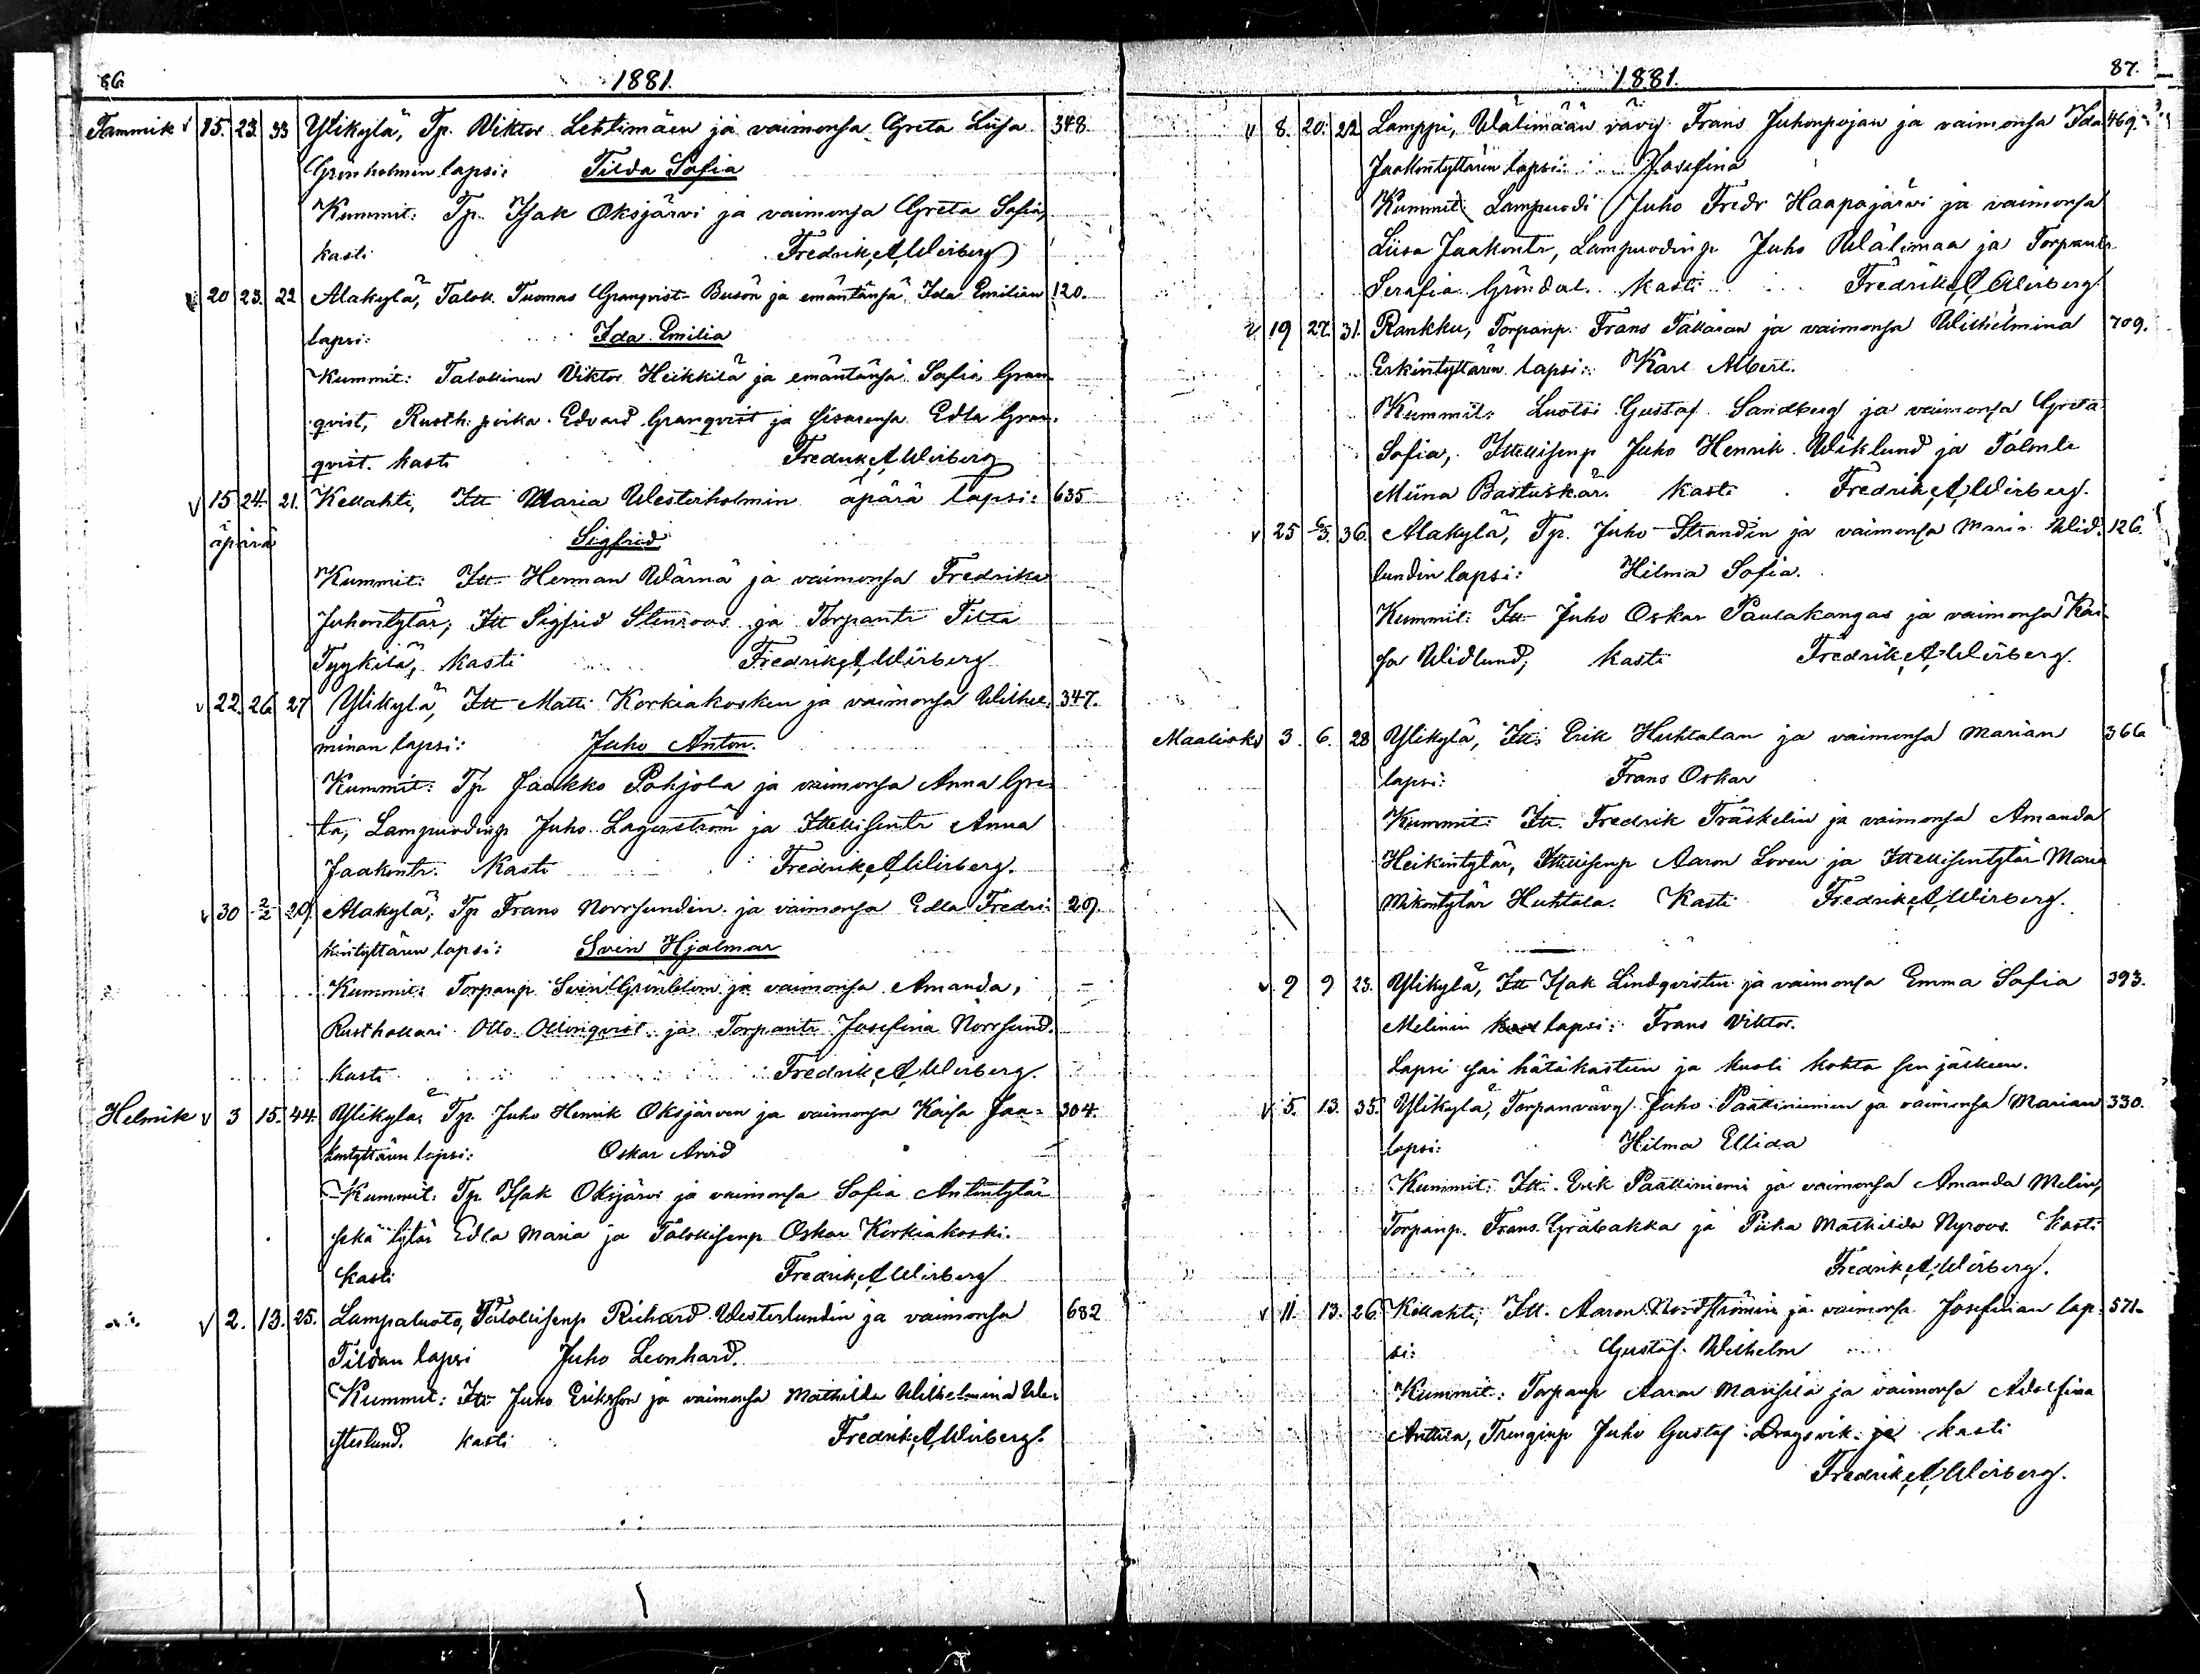 86. 1881.
Tammik v 15. 23. 33 Ylikylä, Tp. Viktor Lehtimäen ja vaimonsa Greta Liisa 348
Grönholmin lapsi: Tilda Sofia
Kummit: Tp. Isak Oksjärvi ja vaimonsa Greta Sofia,
kasti Fredrik A Wirberg
v 20 23. 22 Alakylä, Talok. Tuomas Granqvist-Busön ja emäntänsä Ida Emilian 120.
lapsi: Ida Emilia
Kummit: Talollinen Viktor Heikkilä ja emäntänsä Sofia Gran-
qvist, Rusth. poika Edvard Granqvist ja sisarensa Edla Gran-
qvist. kasti Fredrik A Wirberg
v 15 24. 21. Kellahti, Itt Maria Westerholmin äpärä lapsi: 635
äpärä Sigfrid
Kummit: Itt Herman Wärnä ja vaimonsa Fredrika
Juhontytär, Itt Sigfrid Stenroos ja Torpantr Tilta
Tyykilä, kasti Fredrik A Wirberg
v 22. 26 27 Ylikylä, Itt Matti Korkiakosken ja vaimonsa Wilhel- 347.
minan lapsi: Juho Anton.
Kummit: Tp Jaakko Pohjola ja vaimonsa Anna Gre-
ta, Lampuodinp Juho Lagerström ja Itsellisentr Anna
Jaakontr. Kasti Fredrik A Wirberg.
v 30 2/2 29. Alakylä, Tp Frans Norrsundin ja vaimonsa Edla Fredri- 29.
kintyttären lapsi: Svin Hjalmar
Kummit: Torpanp Svin Grönblom ja vaimonsa Amanda,
Rusthollari Otto Ollonqvist ja Torpantr Josefina Norrsund.
kasti Fredrik A Wirberg.
Helmik v 3 15. 44. Ylikylä, Tp. Juho Henrik Oksjärven ja vaimonsa Kaisa Jaa- 304.
kontyttären lapsi: Oskar Arvid
Kummit: Tp Isak Oksjärvi ja vaimonsa Sofia Antintytär
sekä tytär Edla Maria ja Talollisenp Oskar Korkiakoski.
kasti Fredrik A Wirberg
v 2. 13. 25. Lampaluoto, Talollisenp Richard Westerlundin ja vaimonsa 682
Tildan lapsi Juho Leonhard.
Kummit: Itt Juho Eriksson ja vaimonsa Mathilda Wilhelmina We-
sterlund. kasti Fredrik A Wirberg.
1881. 87.
v 8. 20. 22 Lamppi, Wälimään vävy Frans Juhonpojan ja vaimonsa Ida 469.
Jaakontyttären lapsi: Josefina
Kummit: Lampuodi Juho Fredr Haapajärvi ja vaimonsa
Liisa Jaakontr, Lampuodinp Juho Wälimaa ja Torpantr
Serafia Gröndal. kasti Fredrik A Wirberg
v 19 27. 31. Rankku, Torpanp. Frans Tallaran ja vaimonsa Wilhelmina 709.
Erkintyttären lapsi: Karl Albert.
Kummit: Luotsi Gustaf Sandberg ja vaimonsa Greta
Sofia, Itsellisenp Juho Henrik Wiklund ja Talontr
Miina Bastuskär. kasti Fredrik A Wirberg.
v 25 6/3. 36. Alakylä, Tp. Juho Strandin ja vaimonsa Maria Wid- 126.
lundin lapsi: Hilma Sofia.
Kummit: Itt Juho Oskar Paulakangas ja vaimonsa Kai-
sa Widlund, kasti Fredrik A Wirberg.
Maalisk v 3. 6. 28 Ylikylä, Itt. Erik Huhtalan ja vaimonsa Marian 366
lapsi: Frans Oskar
Kummit: Itt. Fredrik Träskelin ja vaimonsa Amanda
Heikintytär, Itsellisenp Aaron Loven ja Itsellisentytär Maria
Mikontytär Huhtala. Kasti Fredrik A Wirberg.
v 9 9 23. Ylikylä, Itt Isak Lindqvistin ja vaimonsa Emma Sofia 393.
Melinin lapsi: Frans Viktor.
Lapsi sai hätäkasteen ja kuoli kohta sen jälkeen.
v 5. 13. 35. Ylikylä, Torpanvävy Juho Päätiniemen ja vaimonsa Marian 330.
lapsi: Hilma Ellida
Kummit: Itt. Erik Päätiniemi ja vaimonsa Amanda Melin,
Torpanp. Frans Gräbakka ja Piika Mathilda Nyroos. Kasti
Fredrik A Wirberg.
v 11. 13. 26. Kellahti, Itt. Aaron Nordströmin ja vaimonsa Josefinan lap- 571.
si: Gustaf Wilhelm
Kummit: Torpanp Aaron Mansila ja vaimonsa Adolfina
Anttila, Trenginp Juho Gustaf Dragsvik ja kasti
Fredrik A Wirberg.